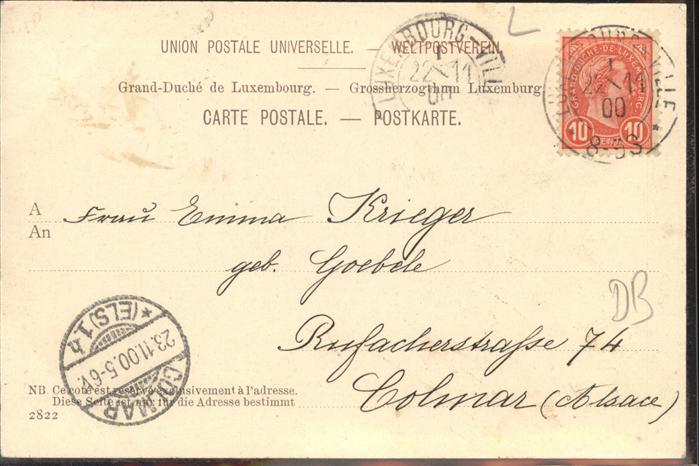 L
UNION POSTALE UNIVERSELLE. — WELTPOSTVEREIN.
Grand-Duché de Luxembourg. — Grossherzogthum Luxemburg.
CARTE POSTALE. — POSTKARTE.
LUXEMBOURG-VILLE
1
22-11
00
LUXEMBOURG-VILLE
1
22-11
00
8-9S
GRAND-DUCHÉ-DE-LUXEMBOURG
10 10
A Frau Emma Krieger
An
geb. Goebele
DB
Rufacherstraße 74
Colmar (Alsace)
COLMAR
* (ELS) 1. h
23.11.00.5-6
NB. Ce côté est réservé exclusivement à l'adresse.
Diese Seite ist nur für die Adresse bestimmt
2822